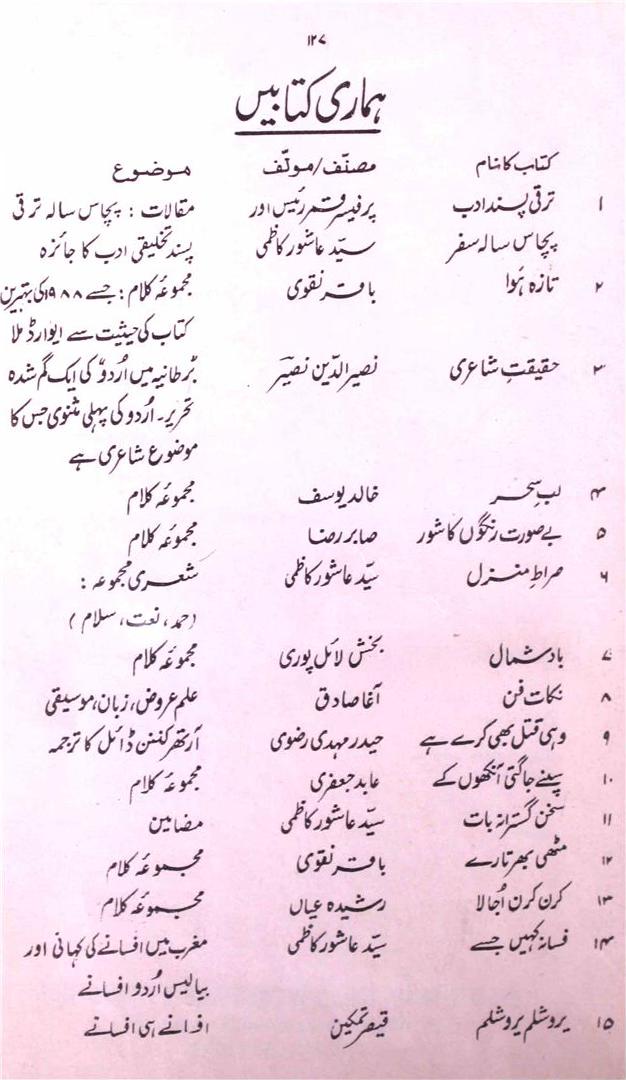 ۱۲۷
ہماری کتابیں
کتاب کا نام مصنّف/مولّف موضوع
۱ ترقی پسند ادب پرفیسر قمر رئیس اور مقالات : پچاس سالہ ترقی
پچاس سالہ سفر سیّد عاشور کاظمی پسند تخلیقی ادب کا جائزہ
۲ تازہ ہُوا باقر نقوی مجموعۂ کلام : جسے ۱۹۸۸ کی بہترین
کتاب کی حیثیت سے ایوارڈ ملا
۳ حقیقتِ شاعری نصیر الدّین نصیر برطانیہ میں اُردو کی ایک گم شدہ
تحریر۔ اُردو کی پہلی مثنوی جس کا
موضوع شاعری ہے
۴ لبِ سحر خالد یوسف مجموعۂ کلام
۵ بے صورت رنگوں کا شور صابر رضا مجموعۂ کلام
۶ صراطِ منزل سیّد عاشور کاظمی شعری مجموعہ :
(حمد، نعت، سلام)
۷ بادِ شمال بخش لائل پوری مجموعۂ کلام
۸ نکات فن آغا صادق علم عروض، زبان، موسیقی
۹ وہی قتل بھی کرے ہے حیدر مہدی رضوی آرتھر کنن ڈائل کا ترجمہ
۱۰ سپنے جاگتی آنکھوں کے عابد جعفری مجموعۂ کلام
۱۱ سخن گسترانہ بات سیّد عاشور کاظمی مضامین
۱۲ مٹھی بھر تارے باقر نقوی مجموعۂ کلام
۱۳ کرن کرن اُجالا رشیدہ عیاں مجموعۂ کلام
۱۴ فسانہ کہیں جسے سیّد عاشور کاظمی مغرب میں افسانے کی کہانی اور
بیالیس اُردو افسانے
۱۵ یروشلم یروشلم قیصر تمکین افسانے ہی افسانے